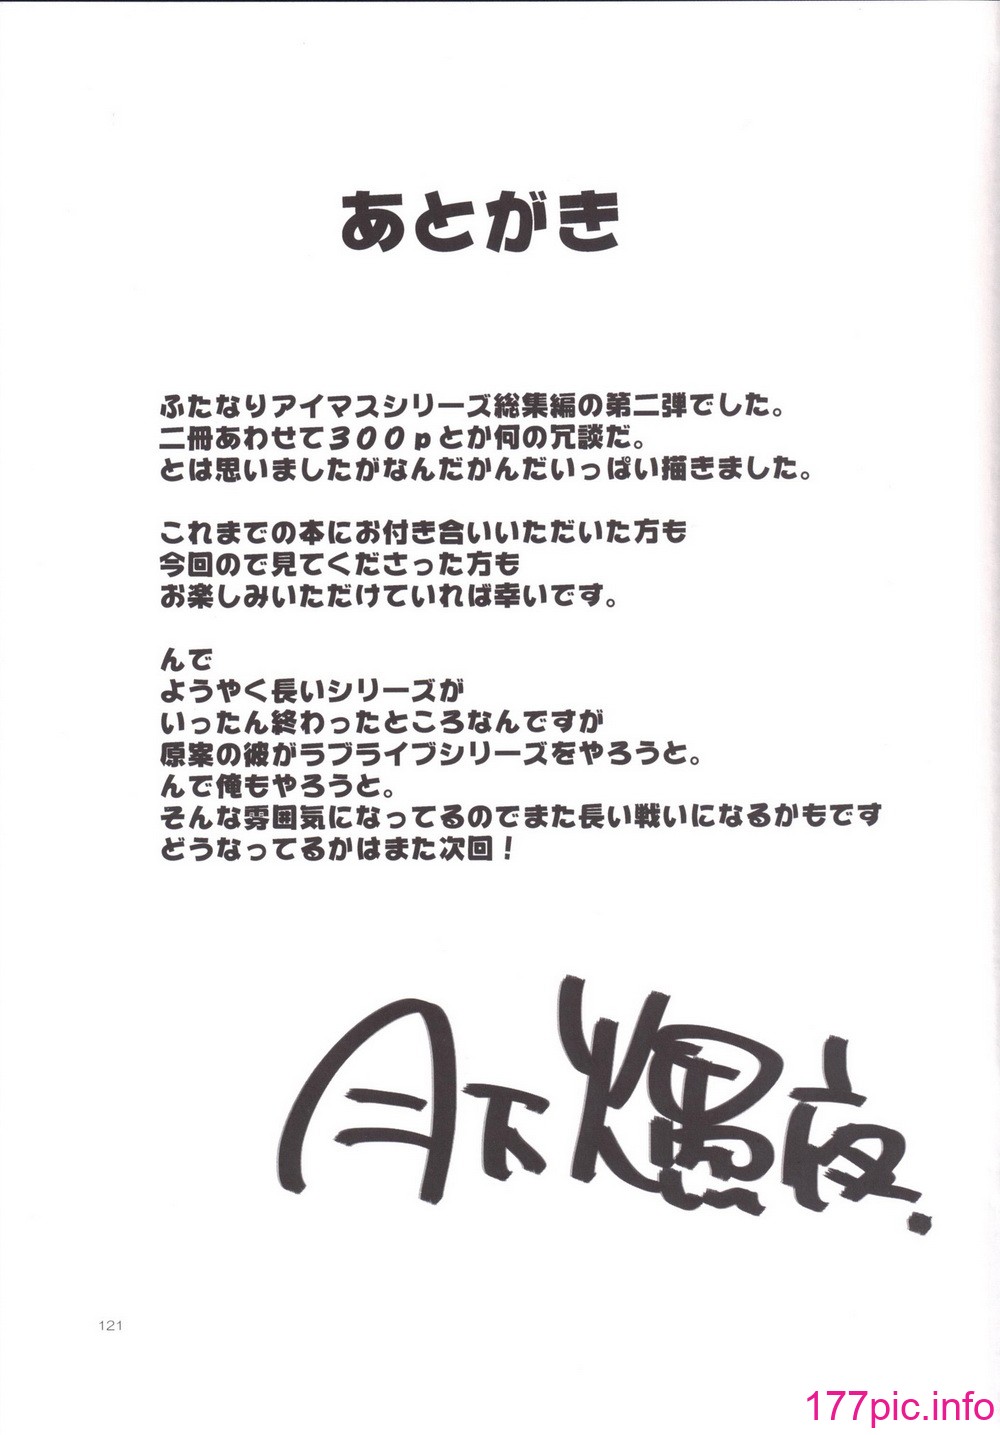 あとがき
ふたなりアイマスシリーズ総集編の第二弾でした。
二冊あわせて３００ｐとか何の冗談だ。
とは思いましたがなんだかんだいっぱい描きました。
これまでの本にお付き合いいただいた方も
今回ので見てくださった方も
お楽しみいただけていれば幸いです。
んで
ようやく長いシリーズが
いったん終わったところなんですが
原案の彼がラブライブシリーズをやろうと。
んで俺もやろうと。
そんな雰囲気になってるのでまた長い戦いになるかもです
どうなってるかはまた次回！
月下燻夜.
121
177pic.info